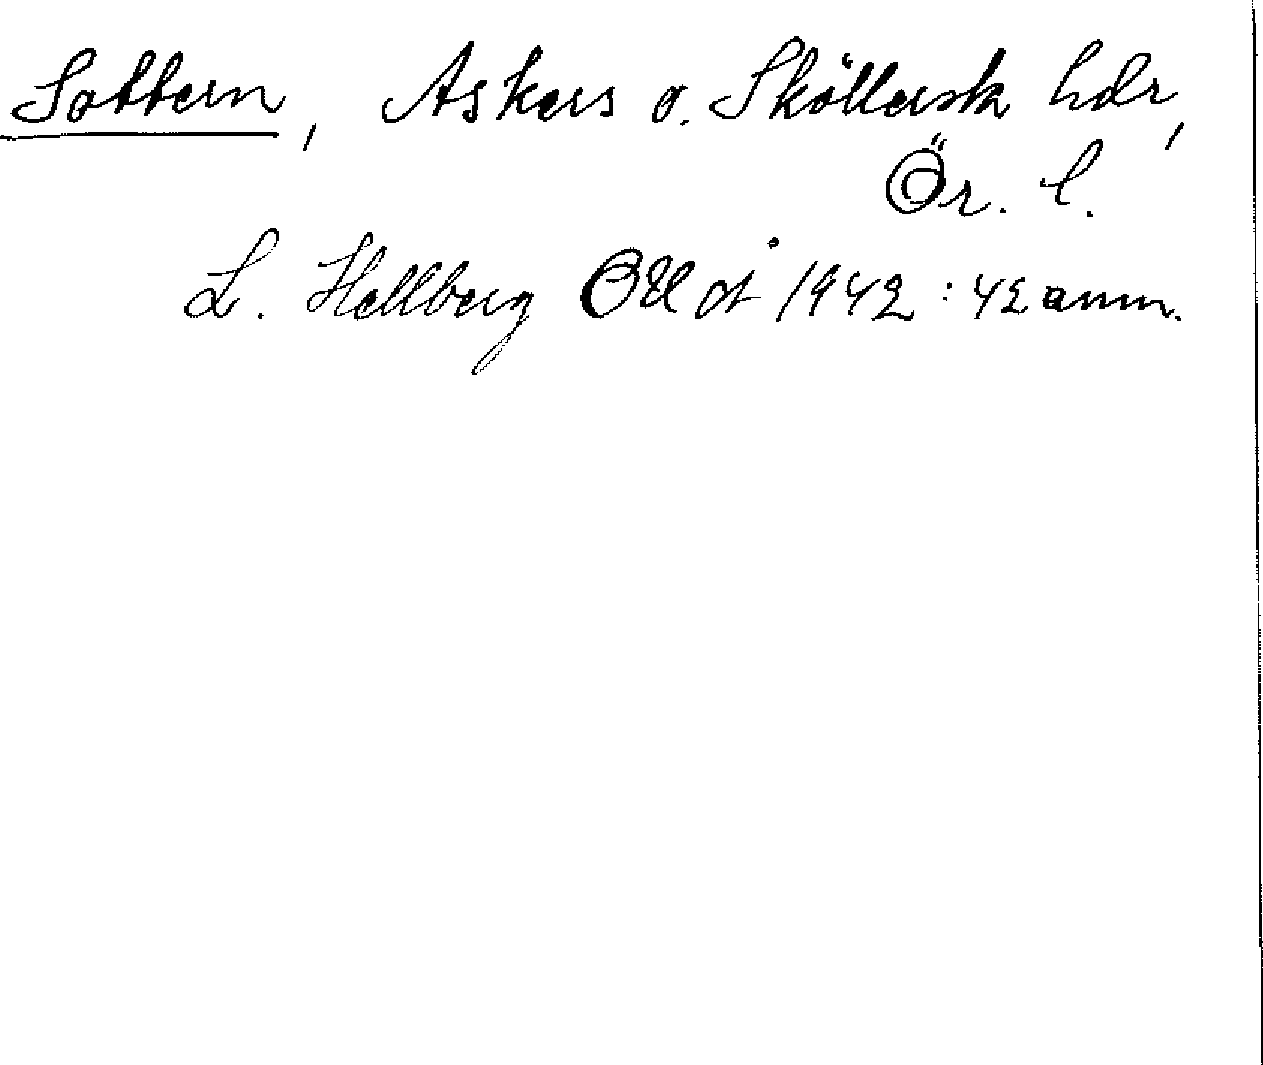 Sottern, Askers o. Sköllersk hdr,
Ör. l.
L. Hellberg OUÅ 1942 : 42 anm.